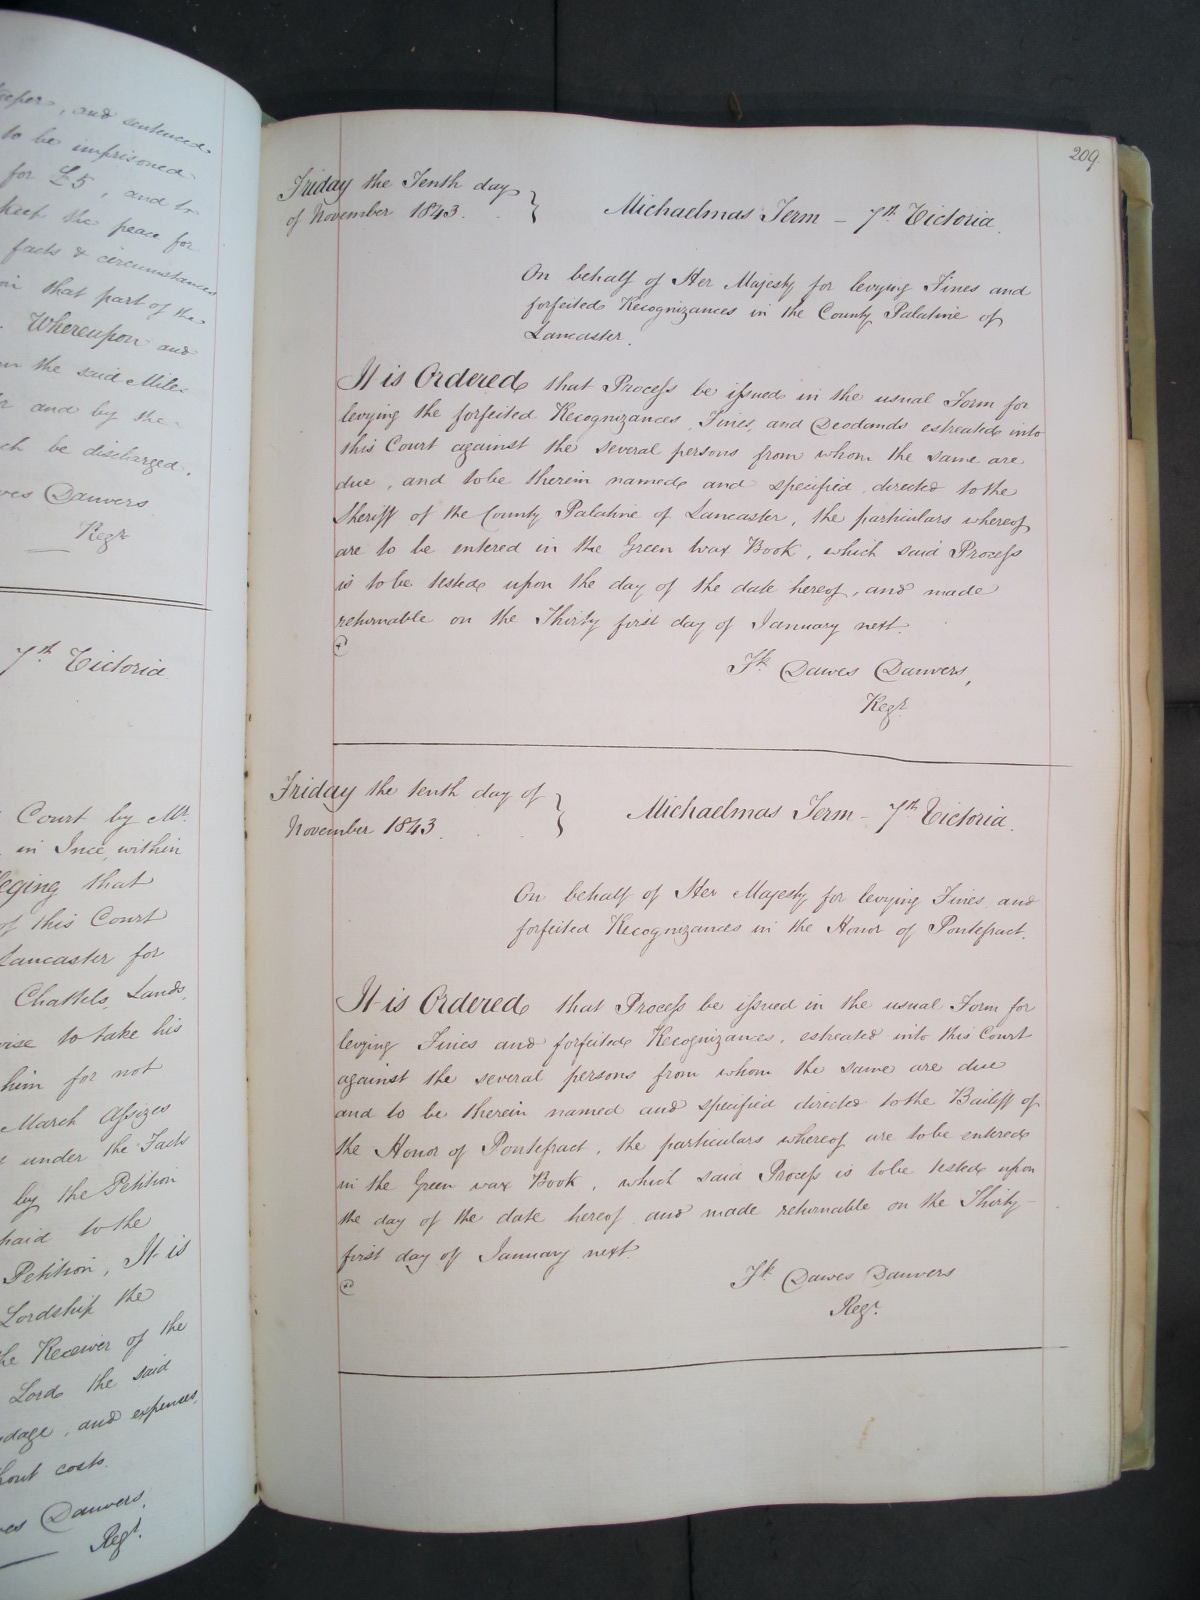 keeper, and sentenced
to be imprisoned
for £5, and to
keep the peace for
facts & circumstances
in that part of the
Whereupon and
the said Miles
and by the
be discharged.
Danvers
Regr
7th Victoria
Court by Mr.
in Ince, within
alleging that
of this Court
Lancaster for
Chattels, Lands,
to take his
him for not
March Assizes
under the Facts
by the Petition
paid to the
Petition, It is
Lordship the
the Receiver of the
Lord the said
and expenses,
costs.
Danvers,
Regr.
209.
Friday the Tenth day
of November 1843.
Michaelmas Term – 7th Victoria.
On behalf of Her Majesty for levying Fines and
forfeited Recognizances in the County Palatine of
Lancaster.
It is Ordered that Process be issued in the usual Form for
levying the forfeited Recognizances, Fines, and Deodands estreated into
this Court against the several persons from whom the same are
due, and to be therein named and specified, directed to the
Sheriff of the County Palatine of Lancaster, the particulars whereof
are to be entered in the Green Wax Book, which said Process
is to be tested upon the day of the date hereof, and made
returnable on the Thirty first day of January next.
Fk. Dawes Danvers,
Regr.
Friday the tenth day of
November 1843.
Michaelmas Term – 7th Victoria.
On behalf of Her Majesty for levying Fines, and
forfeited Recognizances in the Honor of Pontefract.
It is Ordered that Process be issued in the usual Form for
levying Fines and forfeited Recognizances, estreated into this Court
against the several persons from whom the same are due
and to be therein named and specified directed to the Bailiff of
the Honor of Pontefract, the particulars whereof are to be entered
in the Green wax Book, which said Process is to be tested upon
the day of the date hereof and made returnable on the Thirty-
first day of January next.
Fk. Dawes Danvers
Regr.